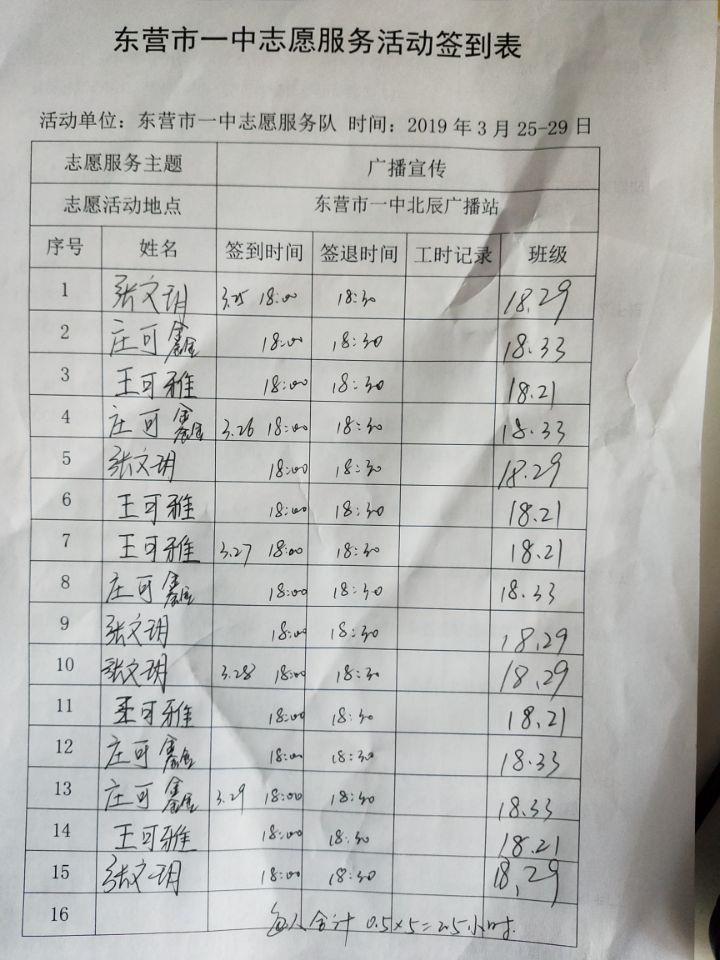 东营市一中志愿服务活动签到表
活动单位：东营市一中志愿服务队 时间：2019 年 3 月 25-29 日
志愿服务主题 广播宣传
志愿活动地点 东营市一中北辰广播站
序号 姓名 签到时间 签退时间 工时记录 班级
1 张文玥 3.25 18:00 18:30 18.29
2 庄可鑫 18:00 18:30 18.33
3 王可雅 18:00 18:30 18.21
4 庄可鑫 3.26 18:00 18:30 18.33
5 张文玥 18:00 18:30 18.29
6 王可雅 18:00 18:30 18.21
7 王可雅 3.27 18:00 18:30 18.21
8 庄可鑫 18:00 18:30 18.33
9 张文玥 18:00 18:30 18.29
10 张文玥 3.28 18:00 18:30 18.29
11 王可雅 18:00 18:30 18.21
12 庄可鑫 18:00 18:30 18.33
13 庄可鑫 3.29 18:00 18:30 18.33
14 王可雅 18:00 18:30 18.21
15 张文玥 18:00 18:30 18.29
16 每人合计 0.5×5=2.5小时.